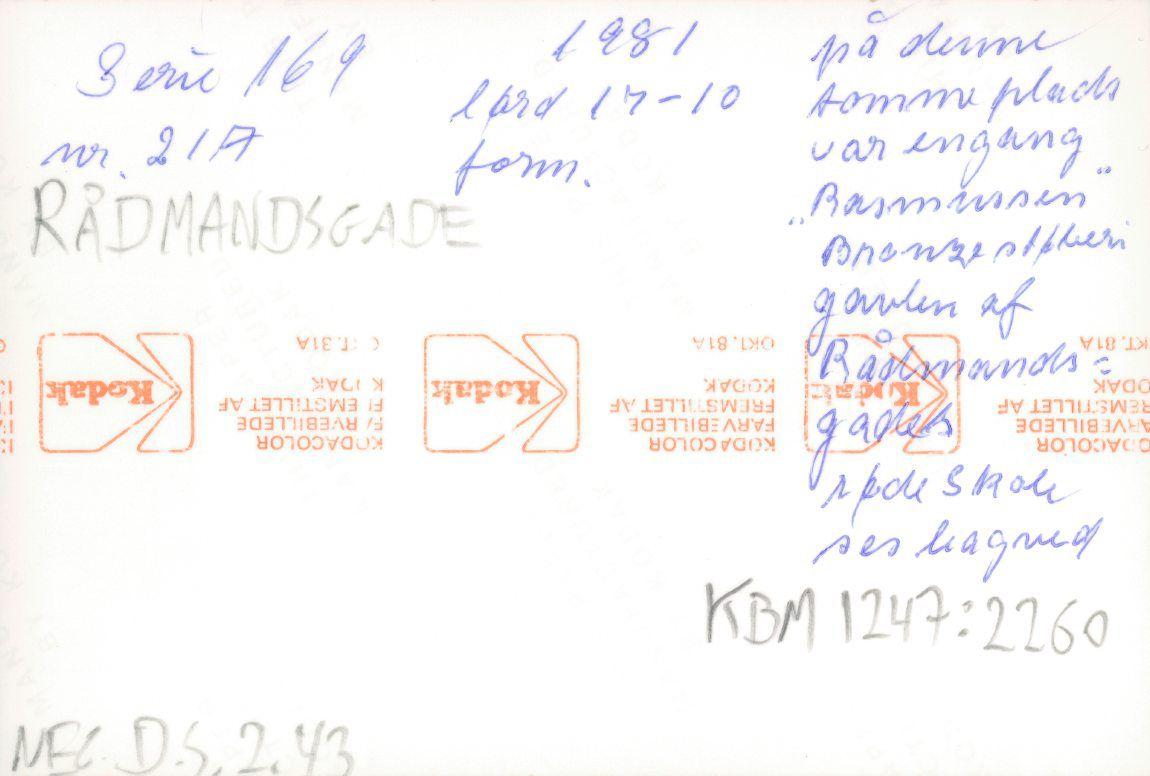 Serie 169
nr. 21A
1981
lørd 17-10
form.
på denne
tomme plads
var engang
"Rasmussen"
Bronzestøberi
gavlen af
Rådmands=
gades
røde Skole
ses bagved
RÅDMANDSGADE
Kodak
KODACOLOR
FARVEBILLEDE
FREMSTILLET AF
KODAK
OKT. 81A
Kodak
KODACOLOR
FARVEBILLEDE
FREMSTILLET AF
KODAK
OKT. 81A
Kodak
KODACOLOR
ARVEBILLEDE
REMSTILLET AF
ODAK
KT. 81A
KBM 1247:2260
NEG. D.S. 2.43